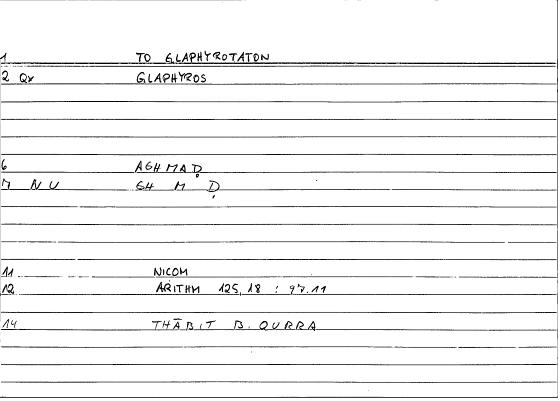 1 TO GLAPHYROTATON
2 Qv GLAPHYROS
6 AGHMAḌ
7 NU GH M Ḍ
11 NICOM
12 ARITHM 125,18 : 97.11
14 THĀBIT B. QURRA